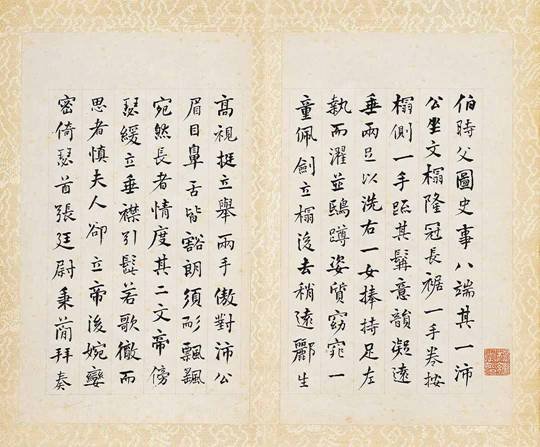 伯時父圖史事八端其一沛
公坐文榻隆冠長裾一手卷按
榻側一手跖其髯意韻凝遠
垂兩足以洗右一女捧持足左
執而濯並鵄蹲姿質窈窕一
童佩劍立榻後去稍遠酈生
高視挺立舉兩手傲對沛公
眉目鼻舌皆豁朗須形飄飄
宛然長者情度其二文帝傍
瑟緩立垂襟引髭若歌徹而
思者慎夫人卻立帝後婉孌
密倚瑟首張廷尉秉蕳拜奏